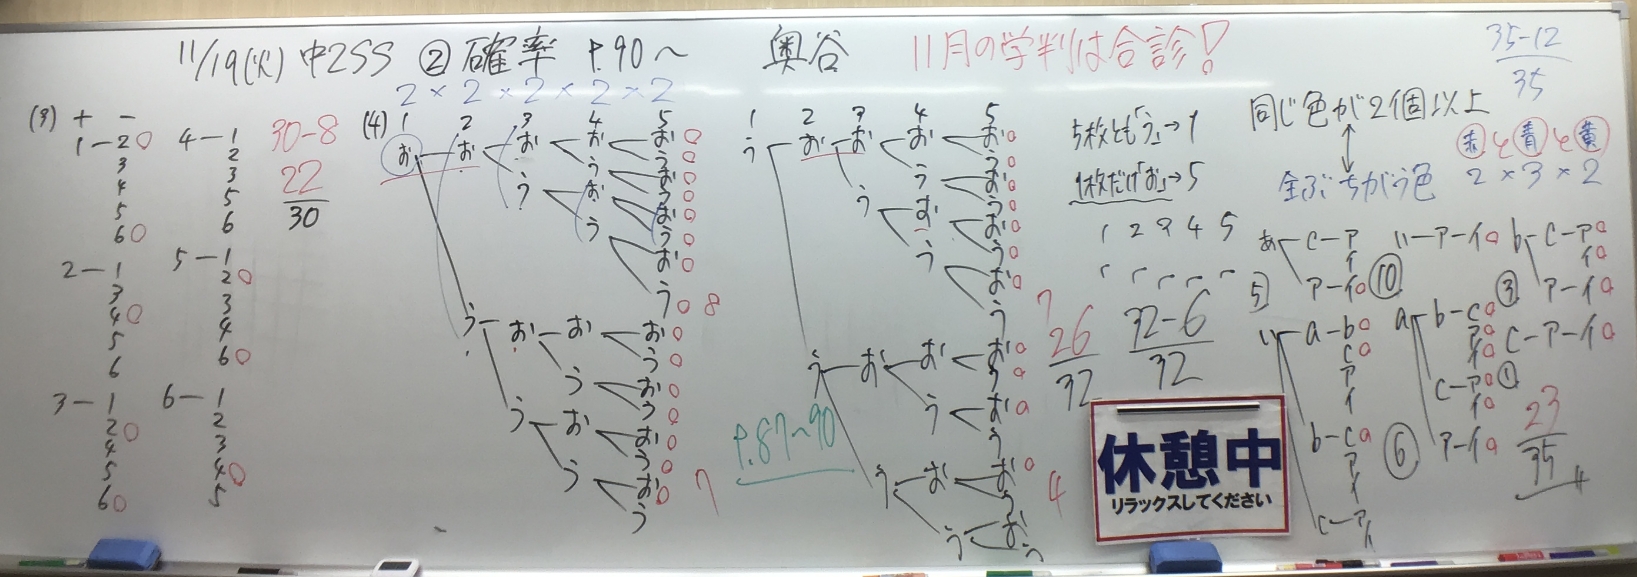 11/19(火) 中2SS ② 確率 P.90〜 奥谷 11月の学判は合診!
35-12
35
2×2×2×2×2
(3) + -
1-2○
3
4
5
6○
2-1
3
4○
5
6
3-1
2○
4
5
6○
4-1
2
3
5
6
5-1
2○
3
4
6○
6-1
2
3
4○
5
30-8
22
30
(4) 1 2 3 4 5
8
7
1 2 3 4 5
7
4
P.87〜90
5枚とも「う」→1
1枚だけ「お」→5
1 2 3 4 5
26
32
32-6
32
同じ色が2個以上
全ぶちがう色
赤と青と黄
2×3×2
5)
あ-c-ア
イ
ア-イ○
⑩
い-a-b○
c○
ア
イ
b-c○
ア
イ
c-ア
イ
⑥
い-ア-イ○
a-b-c○
ア○
イ○
c-ア○
イ○
ア-イ○
b-c-ア○
イ○
ア-イ○
③
c-ア-イ○
①
23
35
休憩中
リラックスしてください